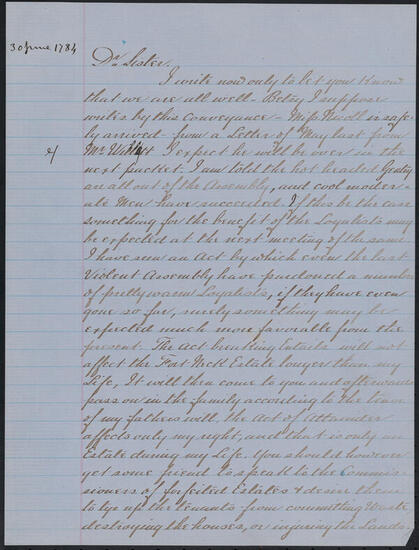 30 June 1784
Dr. Sister,
I write now only to let you Know
that we are all well - Betsy I suppose
writes by this Conveyance - Miss Nicoll is safe-
ly arrived from a Letter of May last from
Mr Willett I expect he will be over in the
next packet. I am told the hot headed Gentry
are all out of the Assembly, and cool moder-
ate Men have succeeded. If this be the case
something for the benefit of the Loyalists may
be expected at the next meeting of the same
I have seen an Act by which even the last
Violent Assembly have pardoned a number
of pretty warm Loyalists, if they have even
gone so far, surely something may be
expected much more favorable from the
present. The Act breaking Entails will not
affect the Fort Neck Estate longer than my
Life, It will then come to you and afterwards
pass on in the family according to the tenor
of my fathers will, the Act of Attainder
affects only my right, and that is only an
Estate during my Life. You should however
get some friend to speak to the Commis-
sioners of forfeited Estates & desire them
to tye up the tenants from committing Waste
destroying the houses, or injuring the Lands,